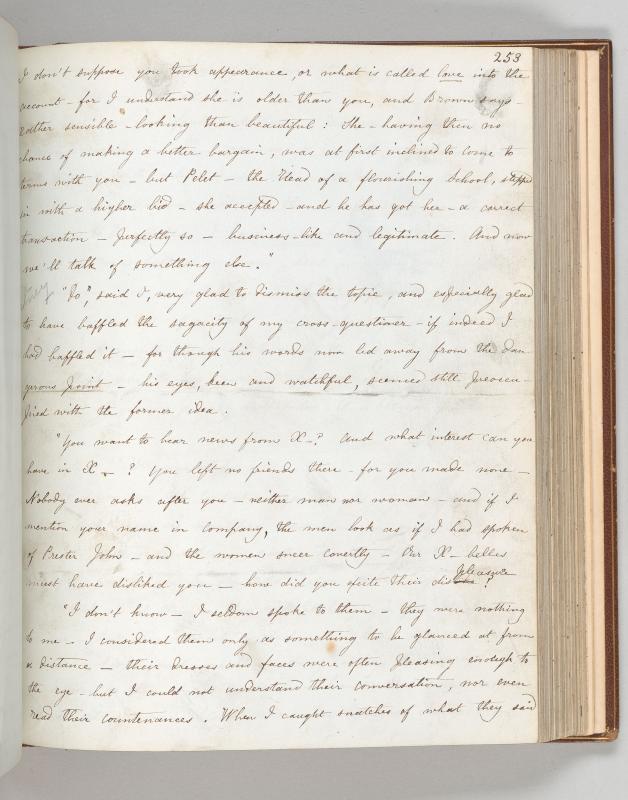 253
I don't suppose you took appearance, or what is called love into the
account – for I understand she is older than you, and Brown says –
rather sensible – looking than beautiful : She – having then no
chance of making a better bargain, was at first inclined to come to
terms with you – but Pelet – the Head of a flourishing School, stepped
in with a higher bid – she accepted – and he has got her – a correct
transaction – perfectly so – business-like and legitimate . And now
we'll talk of something else."
"Do", said I, very glad to dismiss the topic, and especially glad
to have baffled the sagacity of my cross-questioner – if indeed I
had baffled it – for though his words now led away from the dan-
gerous point – his eyes, keen and watchful, seemed still preoccu-
pied with the former idea .
"You want to hear news from X– ? And what interest can you
have in X – ? You left no friends there – for you made none –
Nobody ever asks after you – neither man nor woman – and if I
mention your name in company, the men look as if I had spoken
of Prester John – and the women sneer covertly – Our X– belles
must have disliked you – how did you excite their dis pleasure ?
"I don't know – I seldom spoke to them – they were nothing
to me – I considered them only as something to be glanced at from
a distance – their dresses and faces were often pleasing enough to
the eye – but I could not understand their conversation, nor even
read their countenances . When I caught snatches of what they said